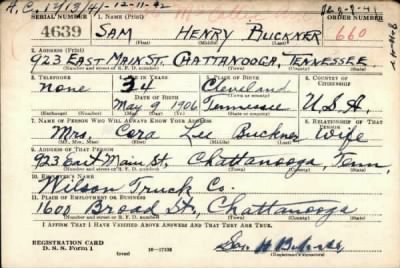 A.C. 1/13/41-12-11-42
SERIAL NUMBER 1. NAME (Print) ORDER NUMBER
4639 SAM HENRY BUCKNER 660
(First) (Middle) (Last)
2. ADDRESS (Print)
923 EAST MAIN ST. CHATTANOOGA, TENNESSEE.
(Number and street or R. F. D. number) (Town) (County) (State)
3. TELEPHONE 4. AGE IN YEARS 5. PLACE OF BIRTH 6. COUNTRY OF CITIZENSHIP
none 34 Cleveland
DATE OF BIRTH
May 9 1906 Tennessee U.S.A.
(Exchange) (Number) (Mo.) (Day) (Yr.) (State or country)
7. NAME OF PERSON WHO WILL ALWAYS KNOW YOUR ADDRESS 8. RELATIONSHIP OF THAT PERSON
Mrs. Cora Lee Buckner Wife
(Mr., Mrs., Miss) (First) (Middle) (Last)
9. ADDRESS OF THAT PERSON
923 East Main St. Chattanooga, Tenn.
(Number and street or R. F. D. number) (Town) (County) (State)
10. EMPLOYER'S NAME
Wilson Truck Co.
11. PLACE OF EMPLOYMENT OR BUSINESS
1600 Broad St., Chattanooga
(Number and street or R. F. D. number) (Town) (County) (State)
I AFFIRM THAT I HAVE VERIFIED ABOVE ANSWERS AND THAT THEY ARE TRUE.
REGISTRATION CARD
D. S. S. Form 1 (over) 16-17105
(Registrant's signature)